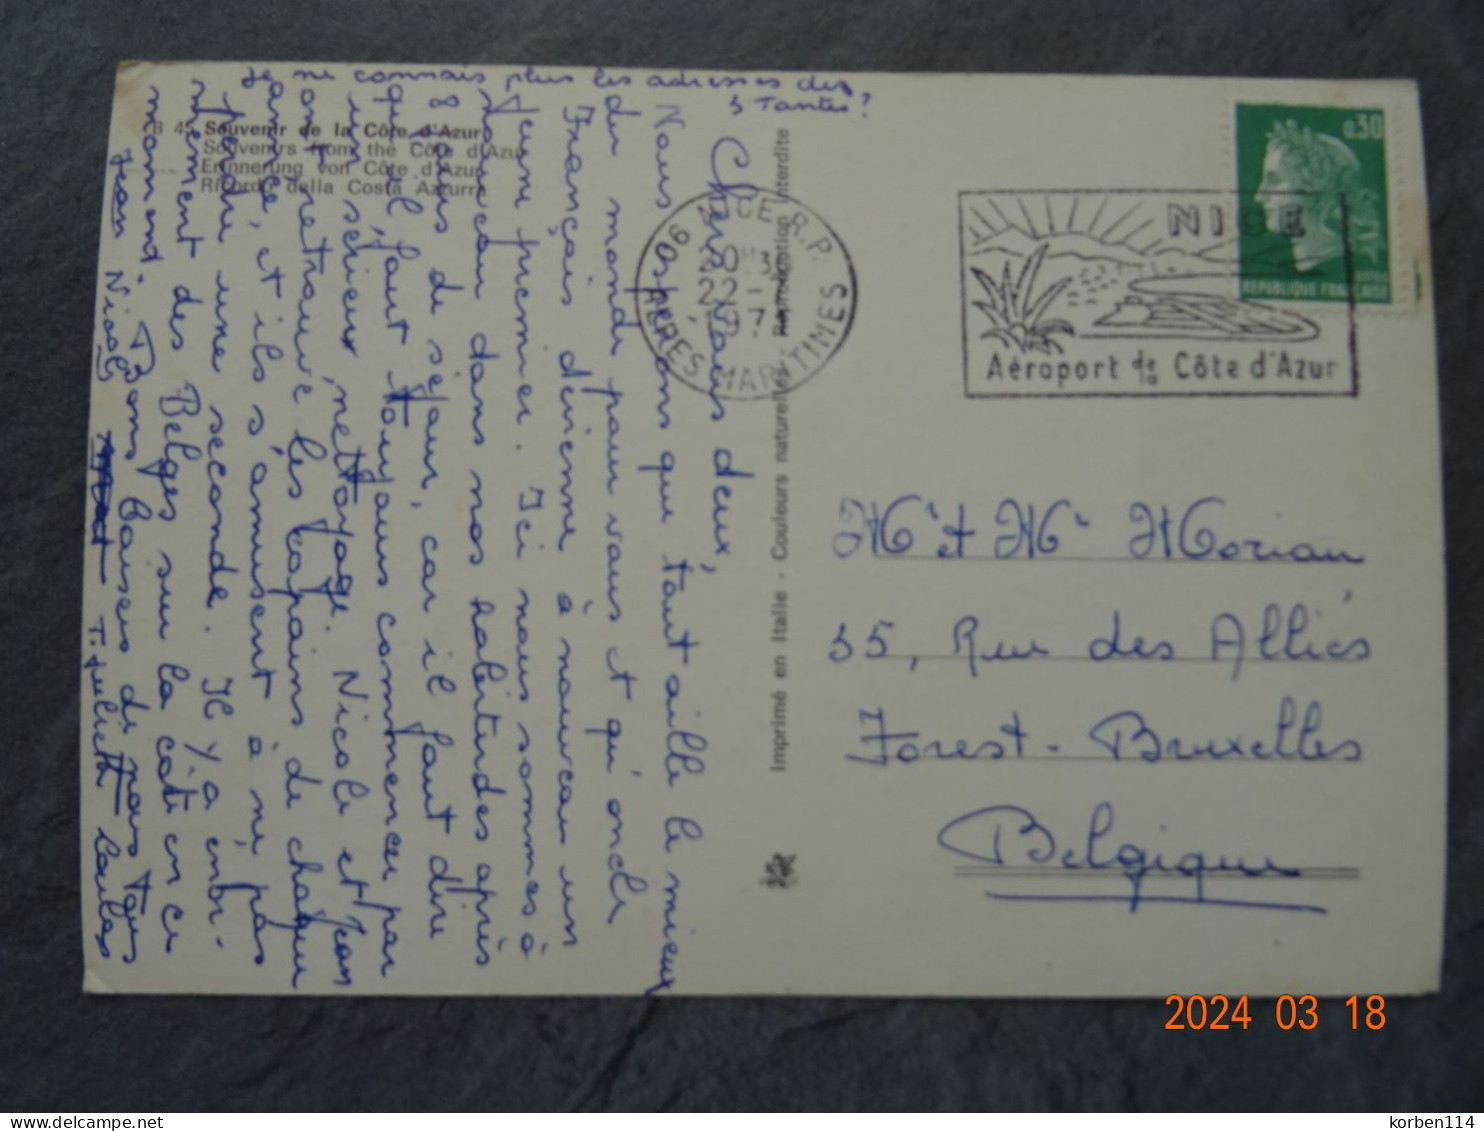 je ne connais plus les adresses des
5 Tantes?
B 45 Souvenir de la Côte d'Azur
Souvenirs from the Côte d'Azur
Erinnerung von Côte d'Azur
Ricordo della Costa Azzurra
Chers vous deux,
Nous espérons que tout aille le mieux
du monde pour vous et qu'oncle
François devienne à nouveau un
jeune premier. Ici nous sommes à
nouveau dans nos habitudes après
8 jours de séjour, car il faut dire
qu'il faut toujours commencer par
un sérieux nettoyage. Nicole et Jean
ont retrouvé les copains de chaque
année, et ils s'amusent à ne pas
perdre une seconde. Il y a énor-
mément des Belges sur la côte en ce
moment. Bons baisers de nous tous
Jean Nicole T. Juliette Louloo
Imprimé en Italie - Couleurs naturelles - Reproduction interdite
06 NICE R.P.
22-
197
ALPES MARITIMES
NICE
Aéroport de la Côte d'Azur
0,30
REPUBLIQUE FRANÇAISE
Mr et Me Morian
35, Rue des Alliés
Forest - Bruxelles
Belgique
2024 03 18
korben114